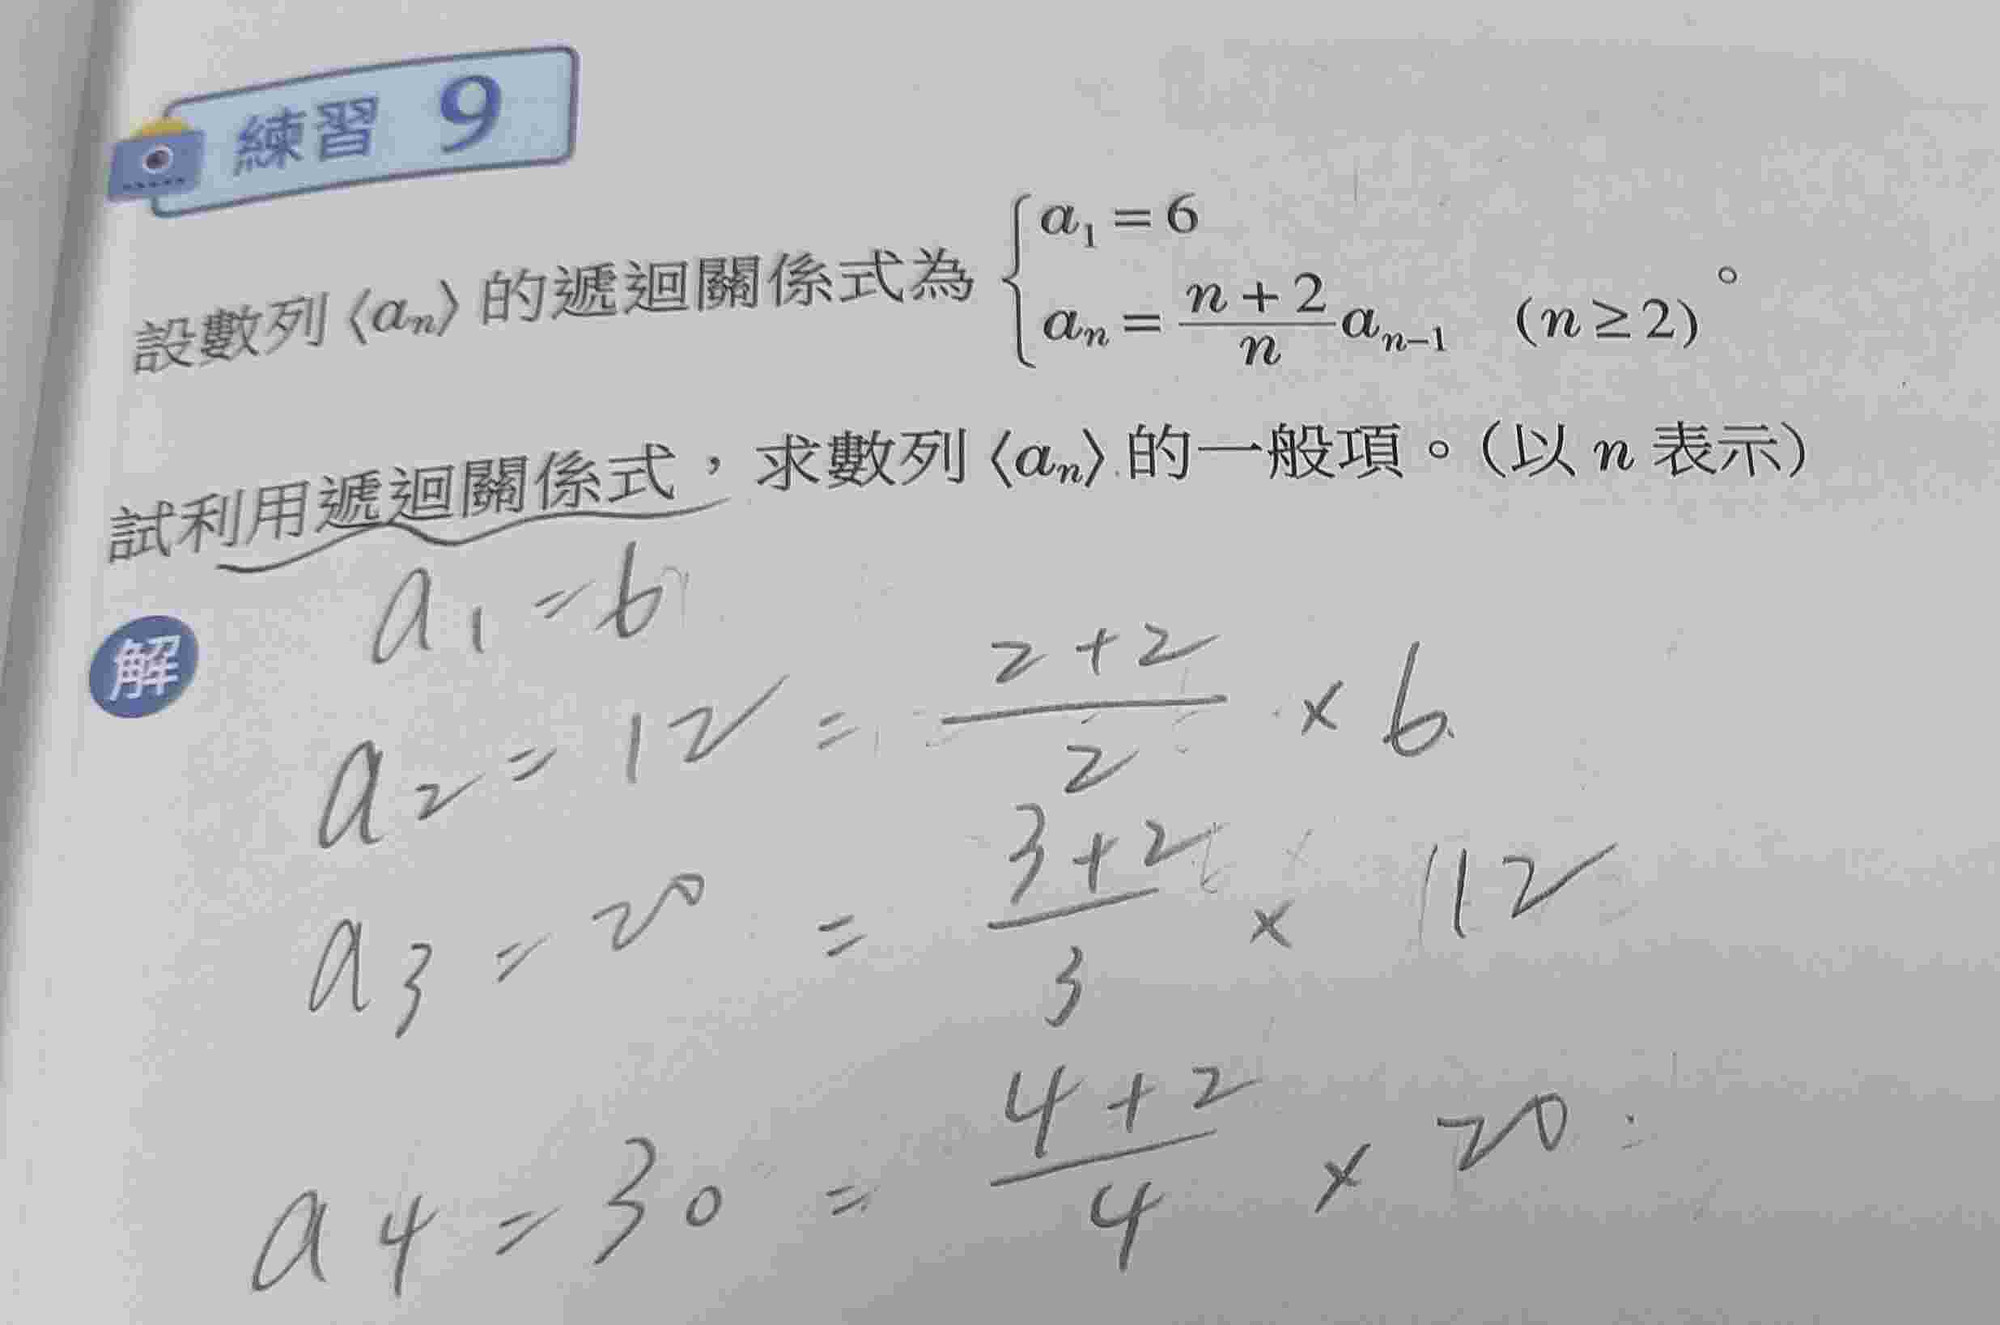 練習 9
設數列⟨aₙ⟩的遞迴關係式為 { a₁ = 6
aₙ = (n+2)/n aₙ₋₁ (n ≥ 2) 。
試利用遞迴關係式，求數列⟨aₙ⟩的一般項。（以 n 表示）
解
a₁ = 6
a₂ = 12 = (2+2)/2 × 6
a₃ = 20 = (3+2)/3 × 12
a₄ = 30 = (4+2)/4 × 20